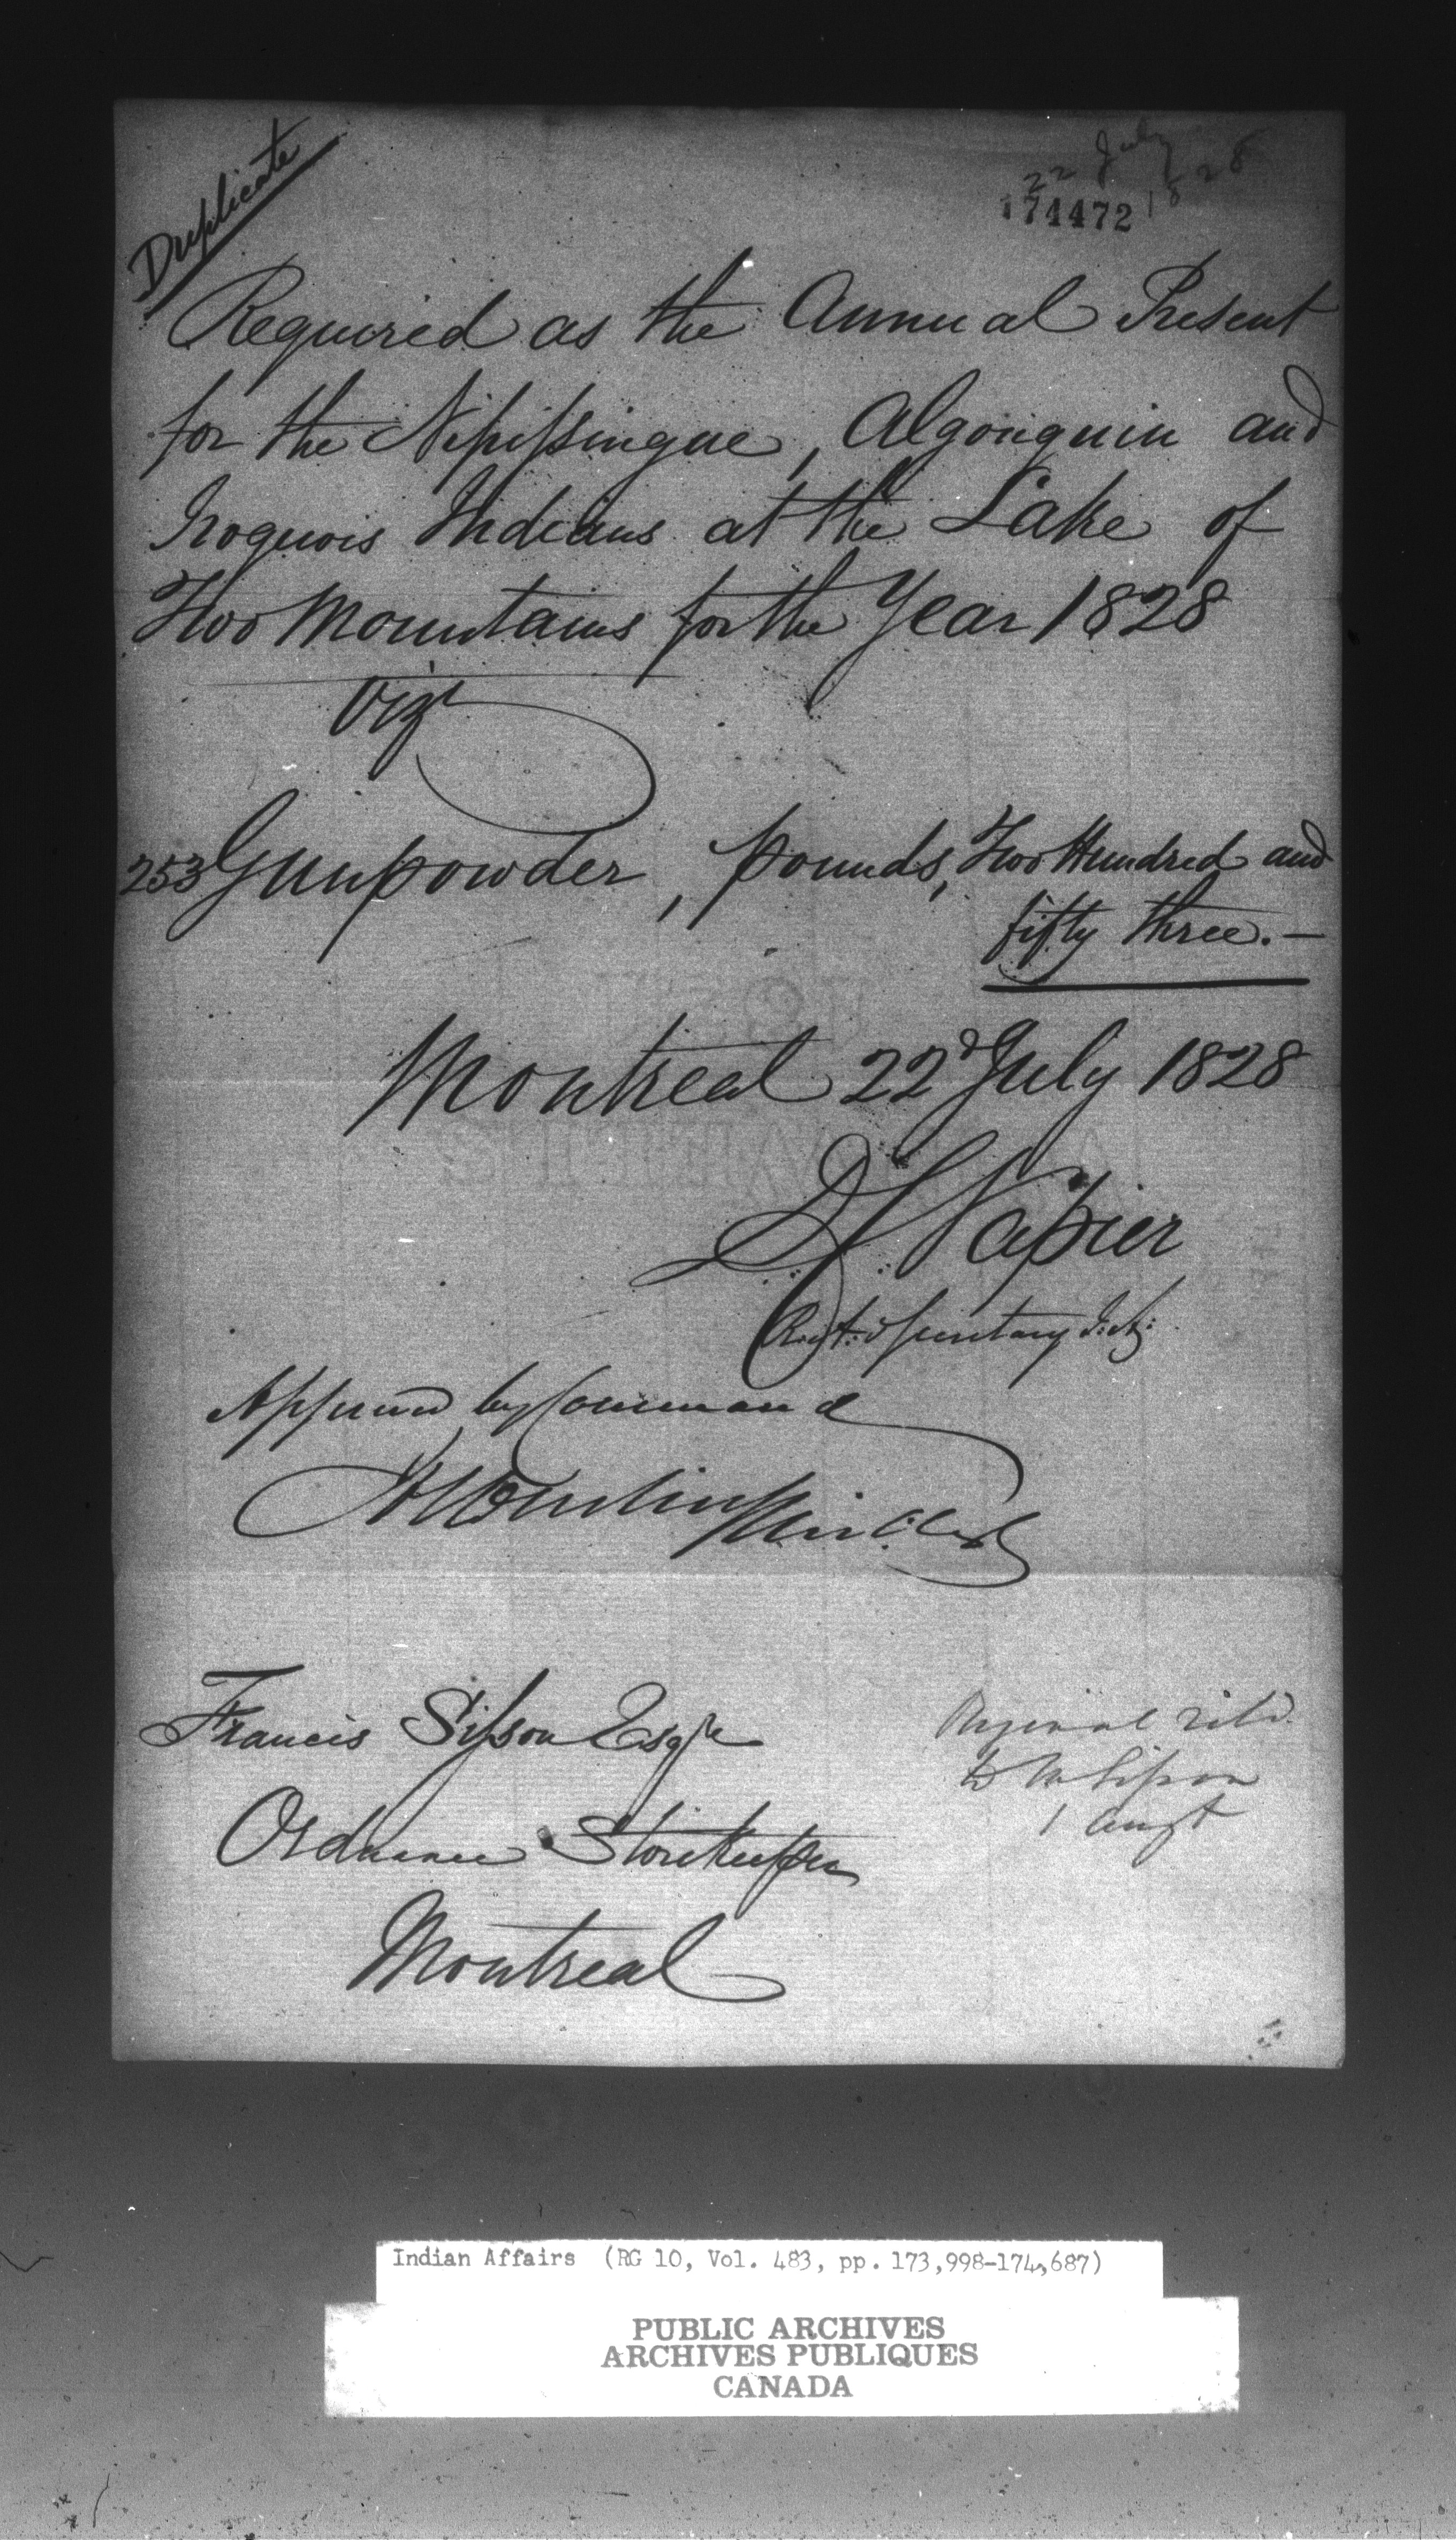 Duplicate
22 July
1828
174472
Required as the Annual Present
for the Nipissingue, Algonquin and
Iroquois Indians at the Lake of
Two Mountains for the Year 1828
Vizt
253 Gunpowder, pounds, Two Hundred and
fifty three.—
Montreal 22d July 1828
D C Napier
Rest: Secretary I: A:
Approved by Command
Francis Sisson Esqre
Ordnance Storekeeper
Montreal
Original
to Mr Sisson
1 Augt
Indian Affairs (RG 10, Vol. 483, pp. 173,998-174,687)
PUBLIC ARCHIVES
ARCHIVES PUBLIQUES
CANADA